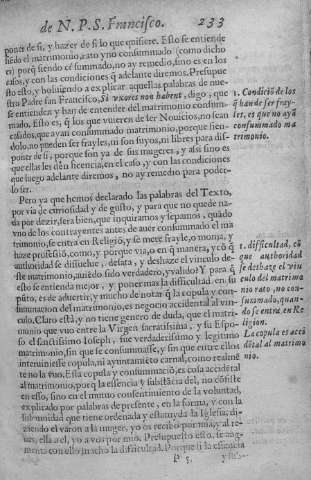 de N. P. S. Francisco. 233
poner de si, y hazer de si lo que quisiere. Esto se entiende
siedo el matrimonio, rato y no consummado (como dicho
es) porq̃ siendo cõsummado, no ay remedio, sino es en los
casos, y con las condiciones q̃ adelante diremos. Presupue
sto esto, y boluiendo a explicar aquellas palabras de nue-
stro Padre san Francisco, Si vxores non habent, digo, que
se entienden y han de entender del matrimonio consum-
mado. Esto es, q̃ los que vuieren de ser Nouicios, no sean
casados, que ayan consummado matrimonio, porque sien-
dolo, no pueden ser frayles, ni son suyos, ni libres para dis-
poner de si, porque son ya de sus mugeres, y assi sino es
que ellas les dẽn licencia, en el caso, y con las condiciones
que luego adelante diremos, no ay remedio para poder-
lo ser.
1. Condiciõ de los
q̃ han de ser fray-
les, es que no ayã
consummado ma
trimonio.
Pero ya que hemos declarado las palabras del Texto,
por via de curiosidad y de gusto, y para que no quede na-
da por dezir, sera bien, que inquiramos y sepamos, quãdo
vno de los contrayentes antes de auer consummado el ma
trimonio, se entra en Religiõ, y se mete frayle, o monja, y
haze professiõ, como, y porque via, o en q̃ manera, y cõ q̃
authoridad se dissuelue, desata, y deshaze el vinculo de-
ste matrimonio, auiẽdo sido verdadero, y valido? Y para q̃
esto se entienda mejor, y ponermas la difficultad, en su
pũto, es de aduertir, y mucho de notar q̃ la copula y con-
summacion del matrimonio, es negocio accidental al vin-
culo. Claro està, y no tiene genero de duda, que el matri-
monio que vuo entre la Virgen sacratissima, y su Espo-
so el sanctissimo Ioseph, fue verdaderissimo y legitimo
matrimonio, sin que se consummasse, y sin que entre ellos
interuiniesse copula, ni ayuntamiẽto carnal, como realmẽ
te no la vuo. Esta copula y consummaciõ, es cosa accidetal
al matrimonio, porq̃ la essencia y substãcia del, no cõsiste
en esso, sino en el mutuo consentimiento de la voluntad,
explicado por palabras de presente, en la forma, y con la
solennidad que tiene ordenada y estatuyda la Iglesia, di-
ziendo el varon a la muger, yo os recibo por mia, y al re-
ues, ella a el, yo a vos por mio. Presupuesto esto, se aug-
menta con ello mucho la difficultad. Porque si la essencia
1. difficultad, cõ
que authoridad
se deshaze el viu
culo del matrimo
nio rato, no con-
sumado, quan-
do se entra en Re
ligion.
La copula es acci
dẽtal al matrimo
nio.
P 5